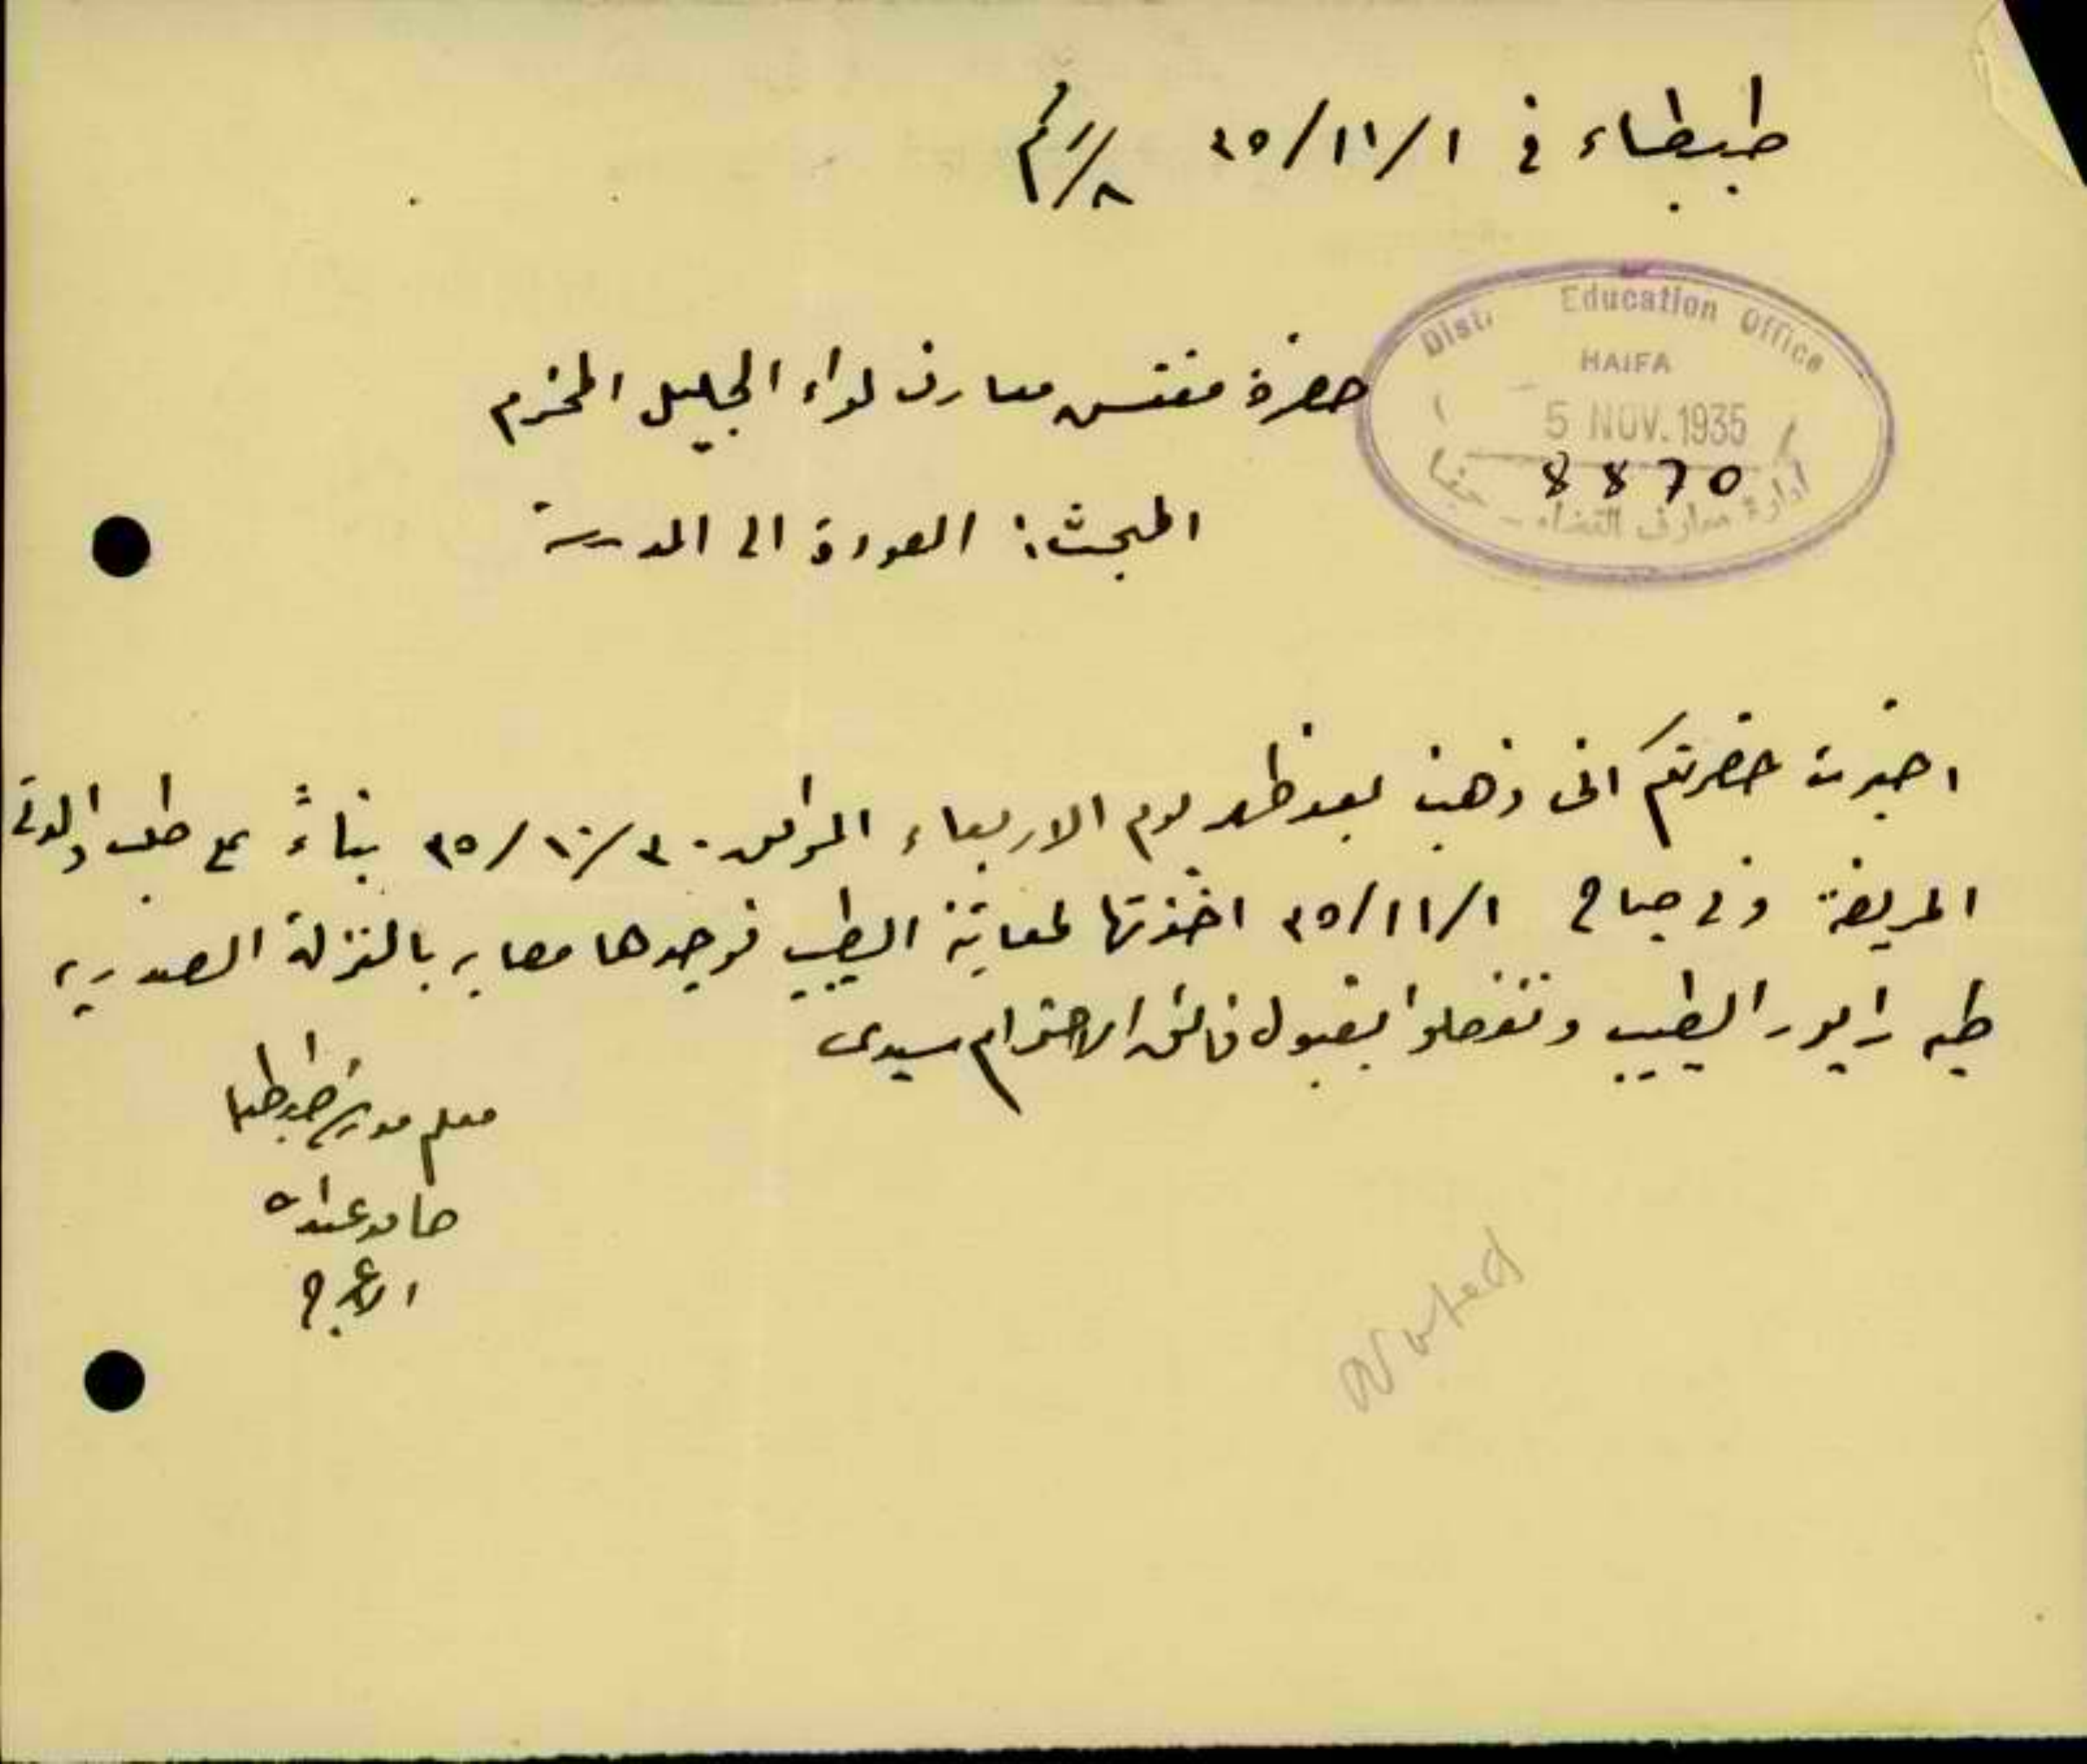 طيطباء في ١/١١/٣٥
Education Office
HAIFA
5 NOV. 1935
8870
ادارة معارف القضاء - حيفا
حضرة مفتش معارف لواء الجليل المحترم
المبحث: العودة الى المدرسة
اخبرت حضرتكم انى ذهبت بعد ظهر يوم الاربعاء الموافق ٣٠/١٠/٣٥ بناءً على طلب والدتي
المريضة وفي صباح ١/١١/٣٥ اخذتها لمعاينة الطبيب فوجدها مصابه بالنزلة الصدريه
طيه رابور الطبيب وتفضلوا بقبول فائق الاحترام سيدى
معلم مدرسة طيطبا
حامد عبدالله
الاعرج
Noted